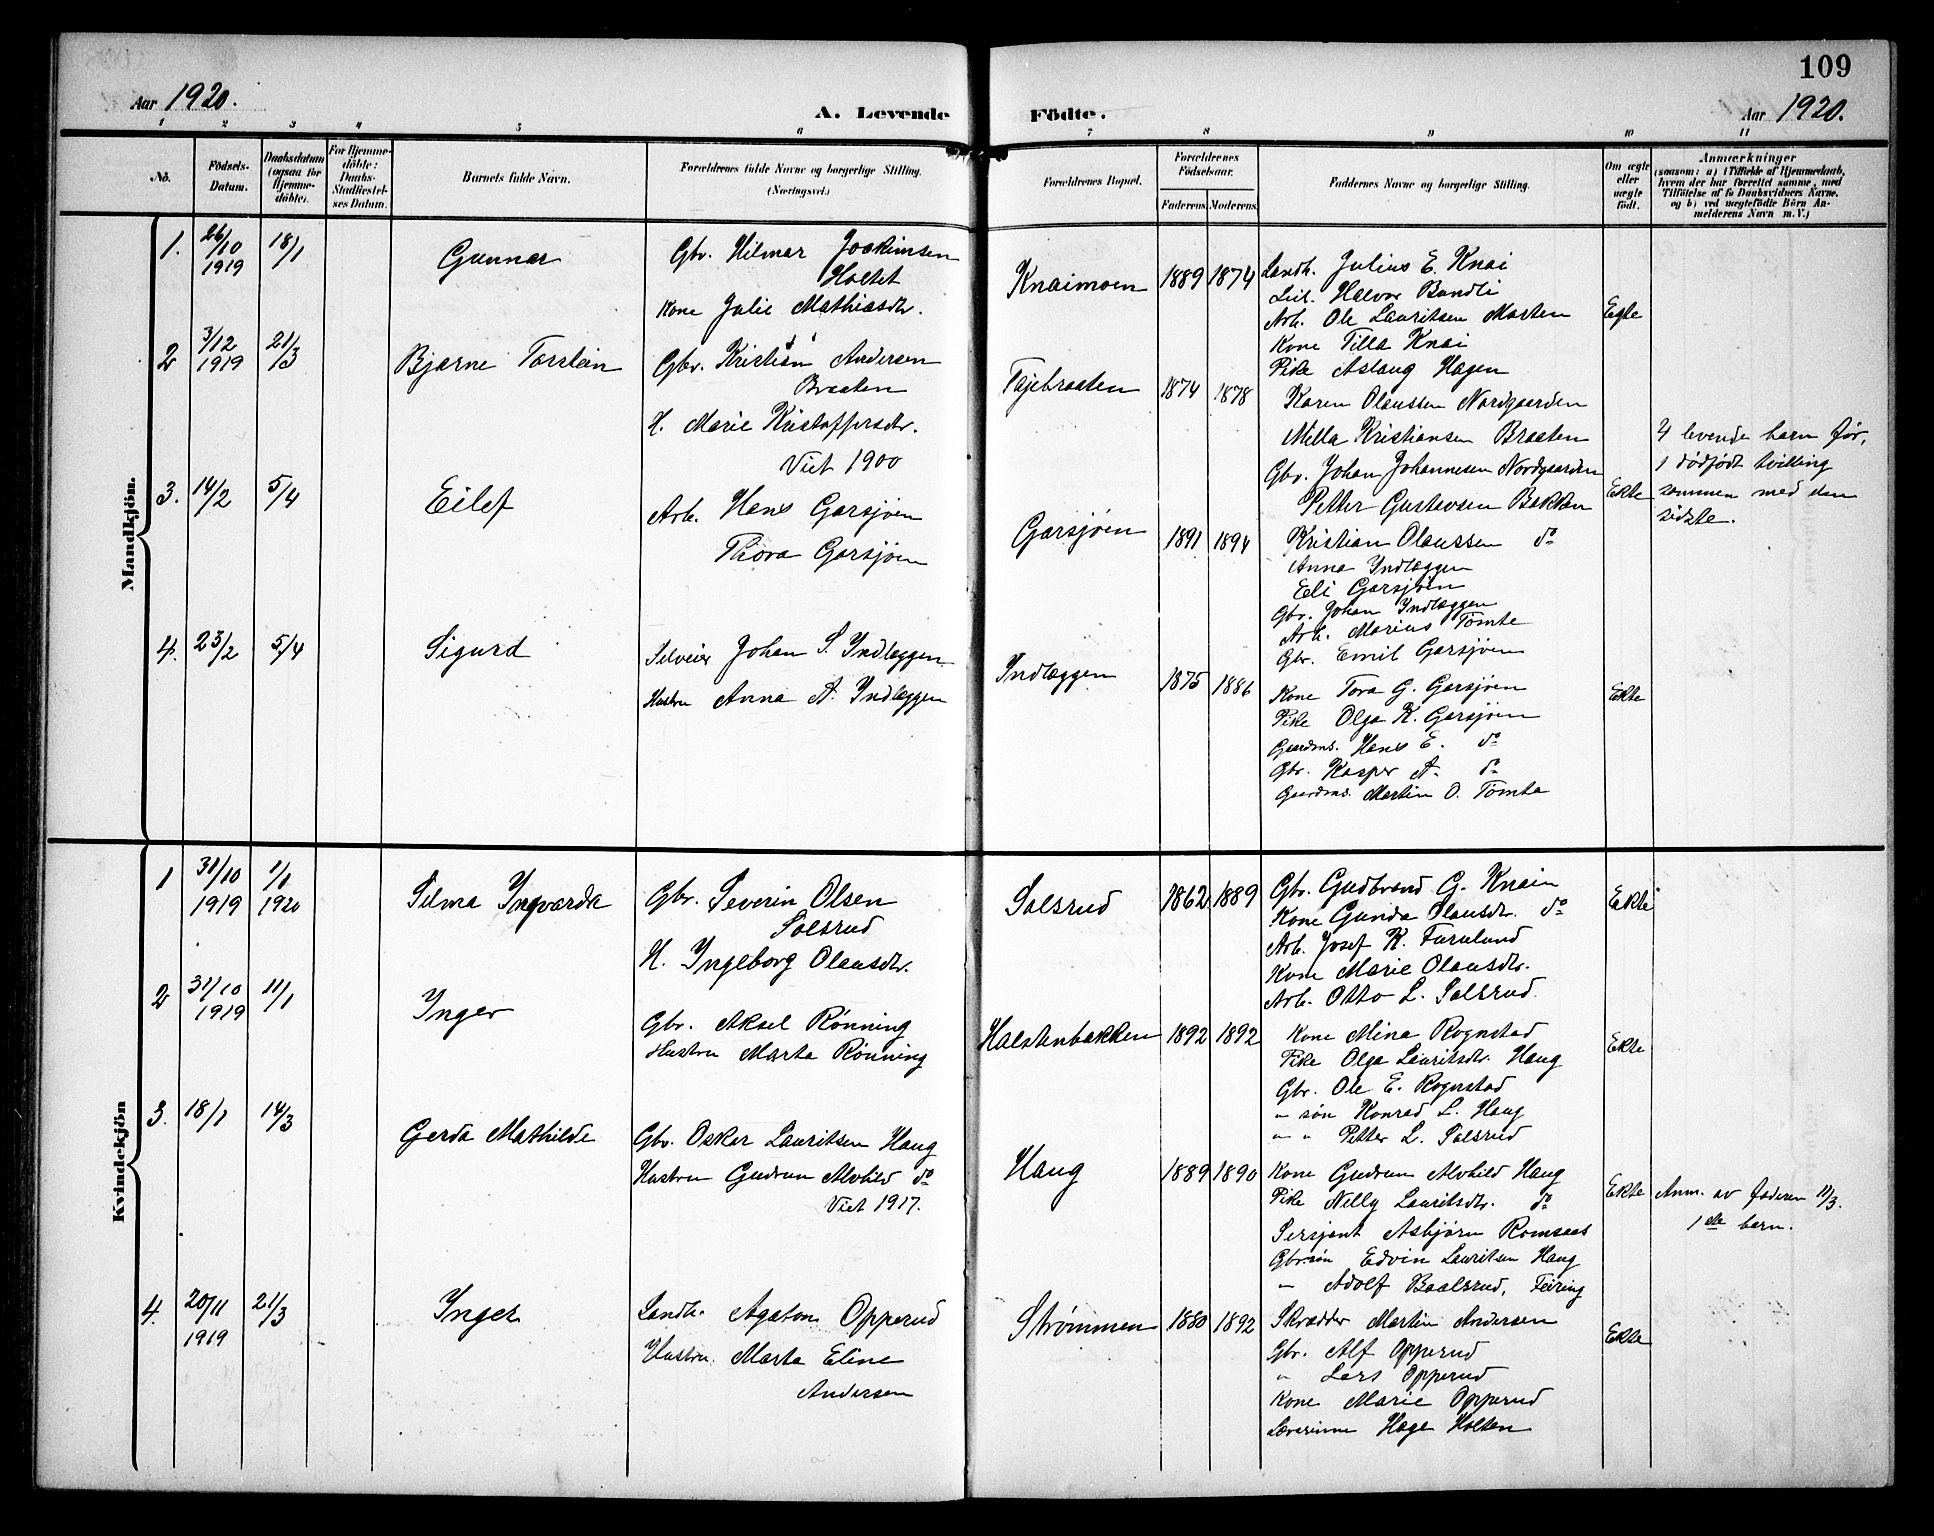 109
Aar 1920.
A. Levende Födte.
Aar 1920.
1 2 3 4 5 6 7 8 9 10 11
No.
Födsels-
Datum.
Daabsdatum
(ogsaa for
Hjemme-
döbte).
For Hjemme-
döbte:
Daabs-
Stadfæstel-
ses Datum.
Barnets fulde Navn.
Forældrenes fulde Navne og borgerlige Stilling.
(Næringsvei.)
Forældrenes Bopæl.
Forældrenes
Födselsaar.
Faderens. Moderens.
Faddernes Navne og borgerlige Stilling.
Om ægte
eller
uægte
födt.
Anmærkninger
(saasom: a) i Tilfælde af Hjemmedaab,
hvem der har forrettet samme, med
Tilföielse af to Daabsvidners Navne.
og b) ved uægtefödte Börn An-
melderens Navn m. V.)
Mandkjön.
1. 26/10 1919 18/1
Gunnar
Gbr. Hilmar Joakimsen
Holtet
Kone Julie Mathiasdtr.
Knaimoen 1889 1874
Landh. Julius E. Knai
Leil. Halvor Bundli
Arb. Ole Lauritsen Morten
Kone Tilla Knai
Pike Aslaug Hagen
Egte
2 3/12 1919 21/3
Bjarne Torstein
Gbr. Kristian Andersen
Braaten
H. Marie Kristoffersdtr.
Viet 1900
Tajebraaten 1874 1878
Karen Olaussen Nordgaarden
Milla Kristiansen Braaten
Gbr. Johan Johannesen Nordgaarden
Petter Gustavsen Bakken
Kristian Olaussen do
Ekte
4 levende barn før,
1 dødfødt tvilling
sammen med den
sidste.
3. 14/2 5/4
Eilef
Arb. Hans Garsjøen
Thora Garsjøen
Garsjøen 1891 1894
Anna Indlæggen
Eli Garsjøen
Gbr. Johan Indlæggen
Arb. Marius Tømte
Gbr. Emil Garsjøen
4. 23/2 5/4
Sigurd
Selveier Johan S. Indlæggen
Hustru Anna A. Indlæggen
Indlæggen 1875 1886
Kone Tora G. Garsjøen
Pike Olga K. Garsjøen
Gaardms. Hans E. do
Gbr. Kasper A. do
Gaardms. Martin O. Tømta
Ekte
Kvindekjön
1 31/10 1919 1/1 1920
Selma Ingvarda
Gbr. Severin Olsen
Solsrud
H. Ingeborg Olausdtr.
Solsrud 1862 1889
Gbr. Gudbrand G. Knain
Kone Gunda Olausdtr. do
Arb. Josef K. Furulund
Kone Marie Olausdtr.
Arb. Otto L. Solsrud.
Ekte
2 31/10 1919 11/1
Inger
Gbr. Aksel Rønning
Hustru Marta Rønning
Halstenbakken 1892 1892
Kone Mina Rognstad
Pike Olga Lauritsdtr. Haug
Gbr. Ole E. Rognstad
" søn Konrad L. Haug
" " Petter L. Solsrud
Ekte
3. 18/1 14/3
Gerda Mathilde
Gbr. Oskar Lauritsen Haug
Hustru Gudrun Alvhild do
Viet 1917.
Haug 1889 1890
Kone Gudrun Alvhild Haug
Pike Nelly Lauritsdtr. do
Sersjant Asbjørn Romsaas
Gbr.søn Edvin Lauritsen Haug
" Adolf Baalsrud, Feiring
Ekte
Anm. av faderen 11/3.
1ste barn.
4. 20/11 1919 21/3
Inger
Landh. Agaton Opperud
Hustru Marta Eline
Andersen
Strømmen 1880 1892
Skrædder Martin Andersen
Gbr. Alf Opperud
" Lars Opperud
Kone Marie Opperud
Lærerinne Hage Holten
Ekte